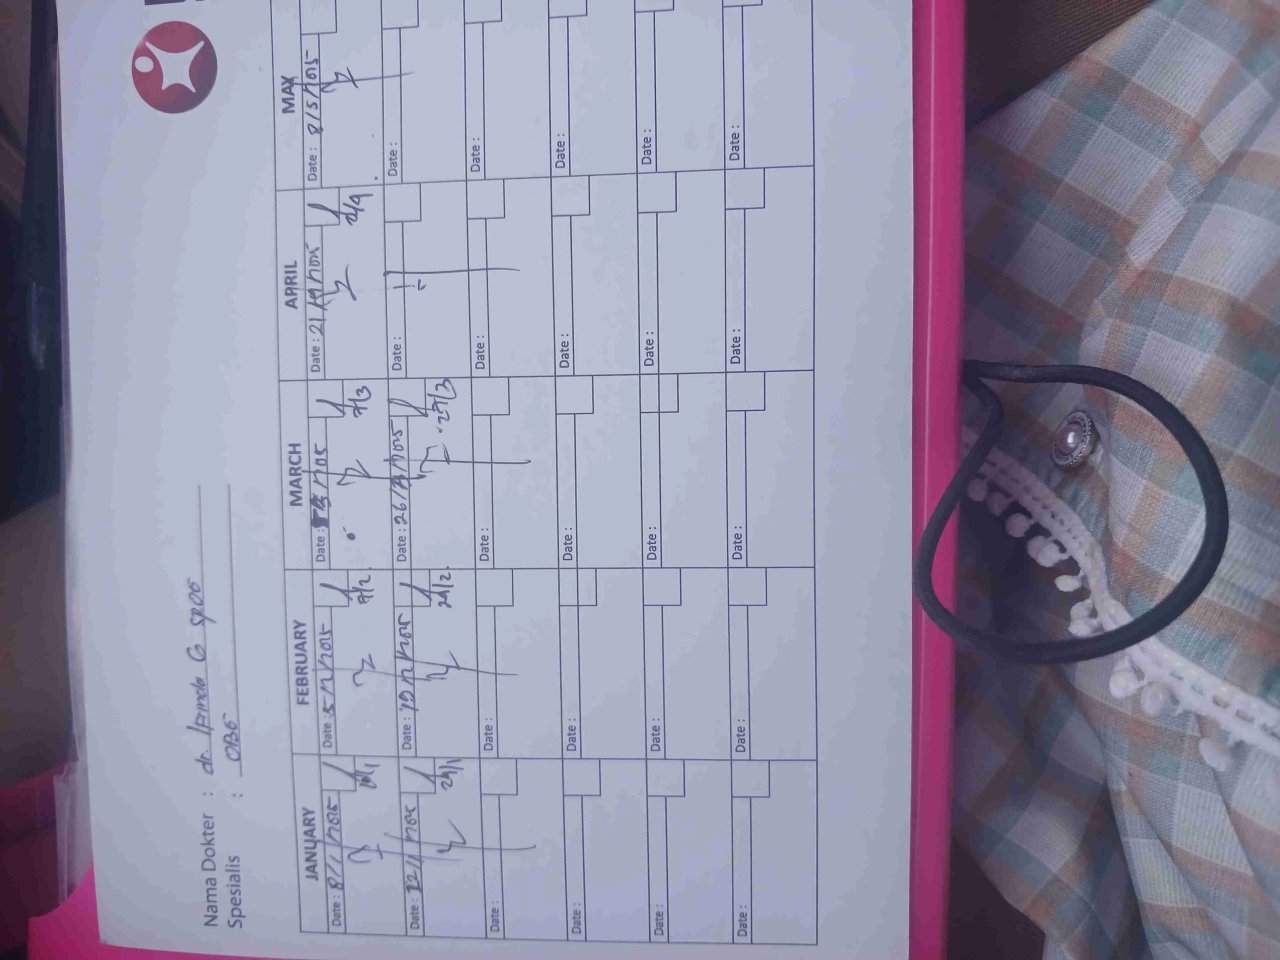 Nama Dokter : dr. Irinda G SpOG
Spesialis : OBG
JANUARY FEBRUARY MARCH APRIL MAY
Date : 8/1/2025 Date : 5/2/2025 Date : /2025 Date : 21/4/2025 Date : 8/5/2025
10/1 8/2 7/3
Date : 22/1/2025 Date : 19/2/2025 Date : 26/3/2025 Date : Date :
24/1 24/2 27/3
Date : Date : Date : Date : Date :
Date : Date : Date : Date : Date :
Date : Date : Date : Date : Date :
Date : Date : Date : Date : Date :